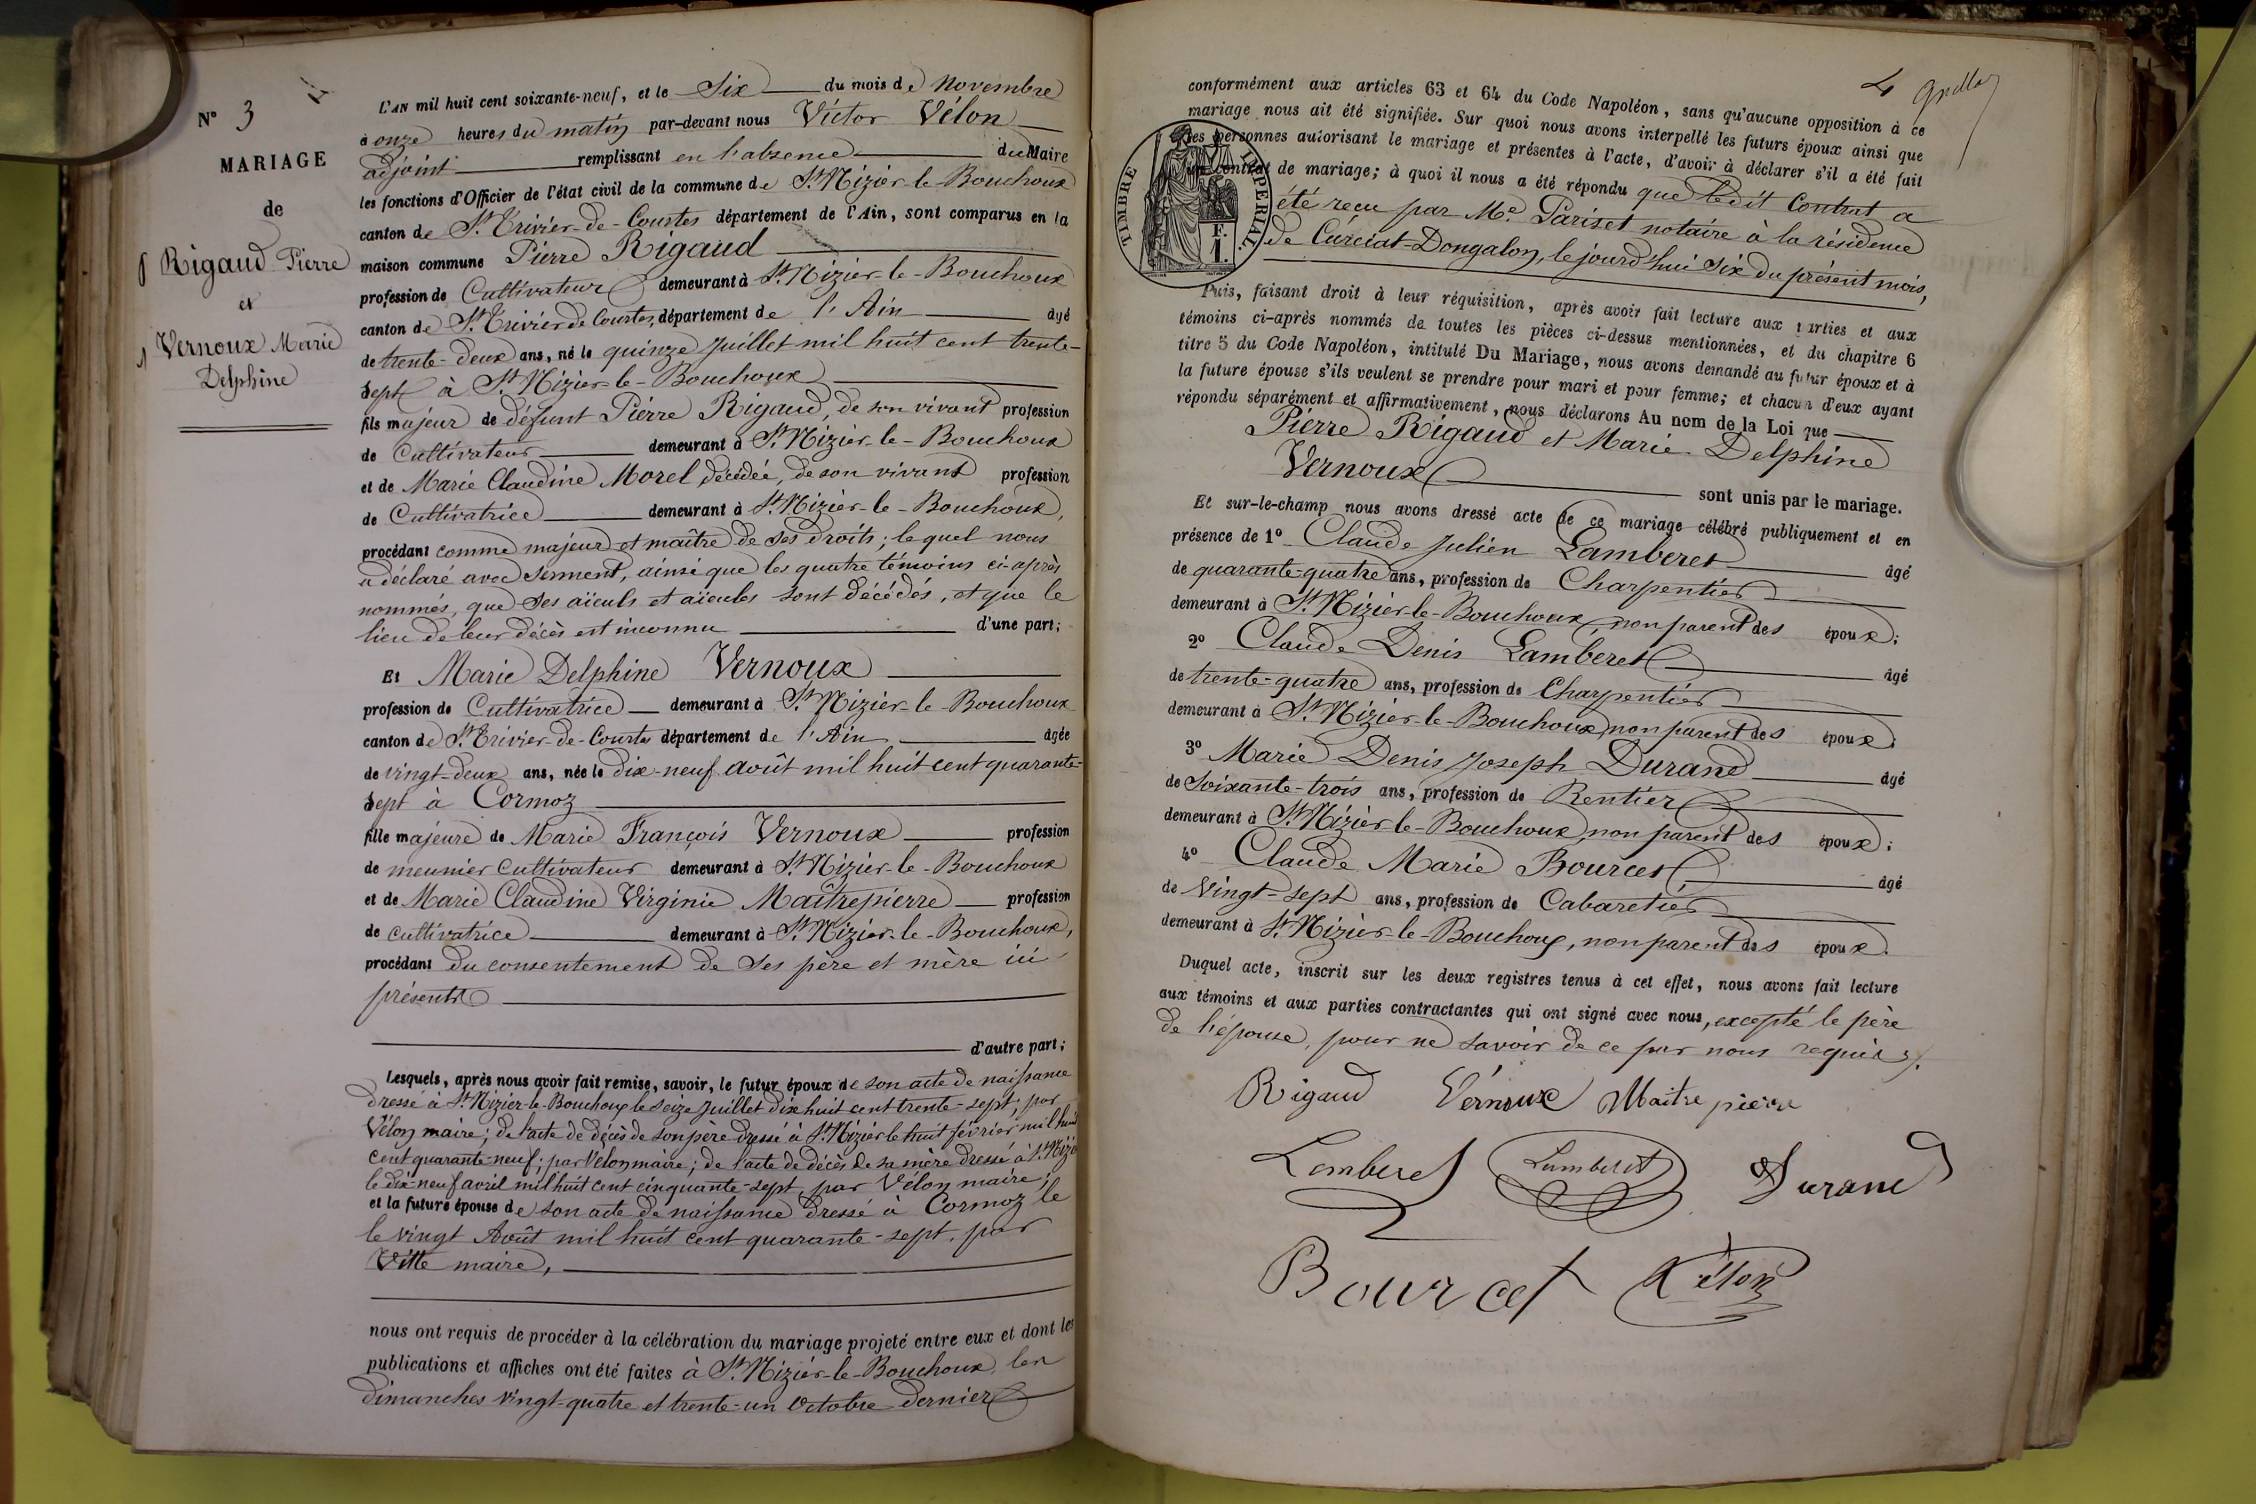 N° 3
MARIAGE
de
Rigaud Pierre
et
Vernoux Marie
Delphine
L'AN mil huit cent soixante-neuf, et le Six du mois de Novembre
à onze heures du matin par-devant nous Victor Vélon
adjoint remplissant en l'absence du Maire
les fonctions d'Officier de l'état civil de la commune de St Nizier-le-Bouchoux
canton de St Trivier-de-Courtes département de l'Ain, sont comparus en la
maison commune Pierre Rigaud
profession de Cultivateur demeurant à St Nizier-le-Bouchoux
canton de St Trivier de Courtes, département de l'Ain âgé
de trente-deux ans, né le quinze Juillet mil huit cent trente-
sept à St Nizier-le-Bouchoux
fils majeur de défunt Pierre Rigaud, de son vivant profession
de Cultivateur demeurant à St Nizier-le-Bouchoux
et de Marie Claudine Morel, décédée, de son vivant profession
de Cultivatrice demeurant à St Nizier-le-Bouchoux,
procédant comme majeur et maître de ses droits; lequel nous
a déclaré avec serment, ainsi que les quatre témoins ci-après
nommés, que ses aïeuls et aïeules sont décédés, et que le
lieu de leur décès est inconnu d'une part;
Et Marie Delphine Vernoux
profession de Cultivatrice demeurant à St Nizier-le-Bouchoux
canton de St Trivier-de-Courtes département de l'Ain âgée
de vingt-deux ans, née le dix-neuf août mil huit cent quarante-
sept à Cormoz
fille majeure de Marie François Vernoux profession
de meunier cultivateur demeurant à St Nizier-le-Bouchoux
et de Marie Claudine Virginie Maîtrepierre profession
de cultivatrice demeurant à St Nizier-le-Bouchoux,
procédant du consentement de ses père et mère ici
présents
d'autre part;
Lesquels, après nous avoir fait remise, savoir, le futur époux de son acte de naissance
dressé à St Nizier-le-Bouchoux le seize Juillet dix huit cent trente-sept, par
Vélon maire; de l'acte de décès de son père dressé à St Nizier le huit février mil huit
cent quarante-neuf; par Vélon maire; de l'acte de décès de sa mère dressé à St Nizier
le dix-neuf avril mil huit cent cinquante-sept par Vélon maire;
et la future épouse de son acte de naissance dressé à Cormoz le
le vingt Août mil huit cent quarante-sept, par
Vitte maire,
nous ont requis de procéder à la célébration du mariage projeté entre eux et dont les
publications et affiches ont été faites à St Nizier-le-Bouchoux, les
dimanches vingt-quatre et trente-un Octobre dernier
4
conformément aux articles 63 et 64 du Code Napoléon, sans qu'aucune opposition à ce
mariage nous ait été signifiée. Sur quoi nous avons interpellé les futurs époux ainsi que
les personnes autorisant le mariage et présentes à l'acte, d'avoir à déclarer s'il a été fait
un contrat de mariage; à quoi il nous a été répondu que ledit Contrat a
été reçu par Me Pariset notaire à la résidence
de Curciat-Dongalon, le jourd'hui six du présent mois,
TIMBRE IMPERIAL
F.
1.
Puis, faisant droit à leur réquisition, après avoir fait lecture aux parties et aux
témoins ci-après nommés de toutes les pièces ci-dessus mentionnées, et du chapitre 6
titre 5 du Code Napoléon, intitulé Du Mariage, nous avons demandé au futur époux et à
la future épouse s'ils veulent se prendre pour mari et pour femme; et chacun d'eux ayant
répondu séparément et affirmativement, nous déclarons Au nom de la Loi que
Pierre Rigaud et Marie Delphine
Vernoux sont unis par le mariage.
Et sur-le-champ nous avons dressé acte de ce mariage célébré publiquement et en
présence de 1° Claude Julien Lamberet âgé
de quarante-quatre ans, profession de Charpentier
demeurant à St Nizier-le-Bouchoux, non parent des époux;
2° Claude Denis Lamberet âgé
de trente-quatre ans, profession de Charpentier
demeurant à St Nizier-le-Bouchoux non parent des époux;
3° Marie Denis Joseph Durand âgé
de Soixante-trois ans, profession de Rentier
demeurant à St Nizier-le-Bouchoux, non parent des époux;
4° Claude Marie Bourcet âgé
de Vingt-sept ans, profession de Cabaretier
demeurant à St Nizier-le-Bouchoux, non parent des époux.
Duquel acte, inscrit sur les deux registres tenus à cet effet, nous avons fait lecture
aux témoins et aux parties contractantes qui ont signé avec nous, excepté le père
de l'épouse, pour ne savoir de ce par nous requis.
Rigaud Vernoux Maitre pierre
Lamberet Lamberet Durand
Bourcet Vélon